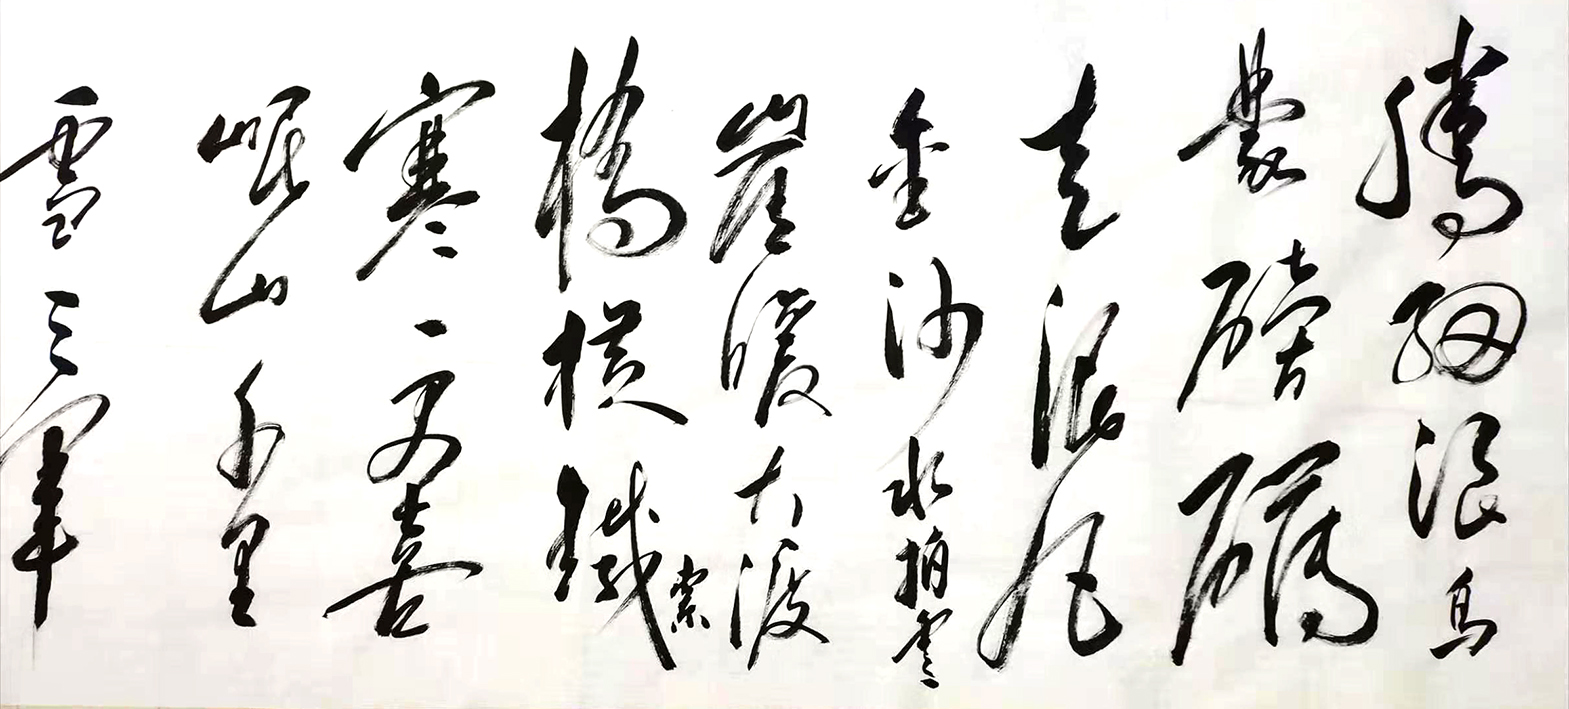 騰細浪烏
蒙磅礴
走泥丸
金沙水拍雲
崖暖大渡
橋横鐵索
寒更喜
岷山千里
雪三軍